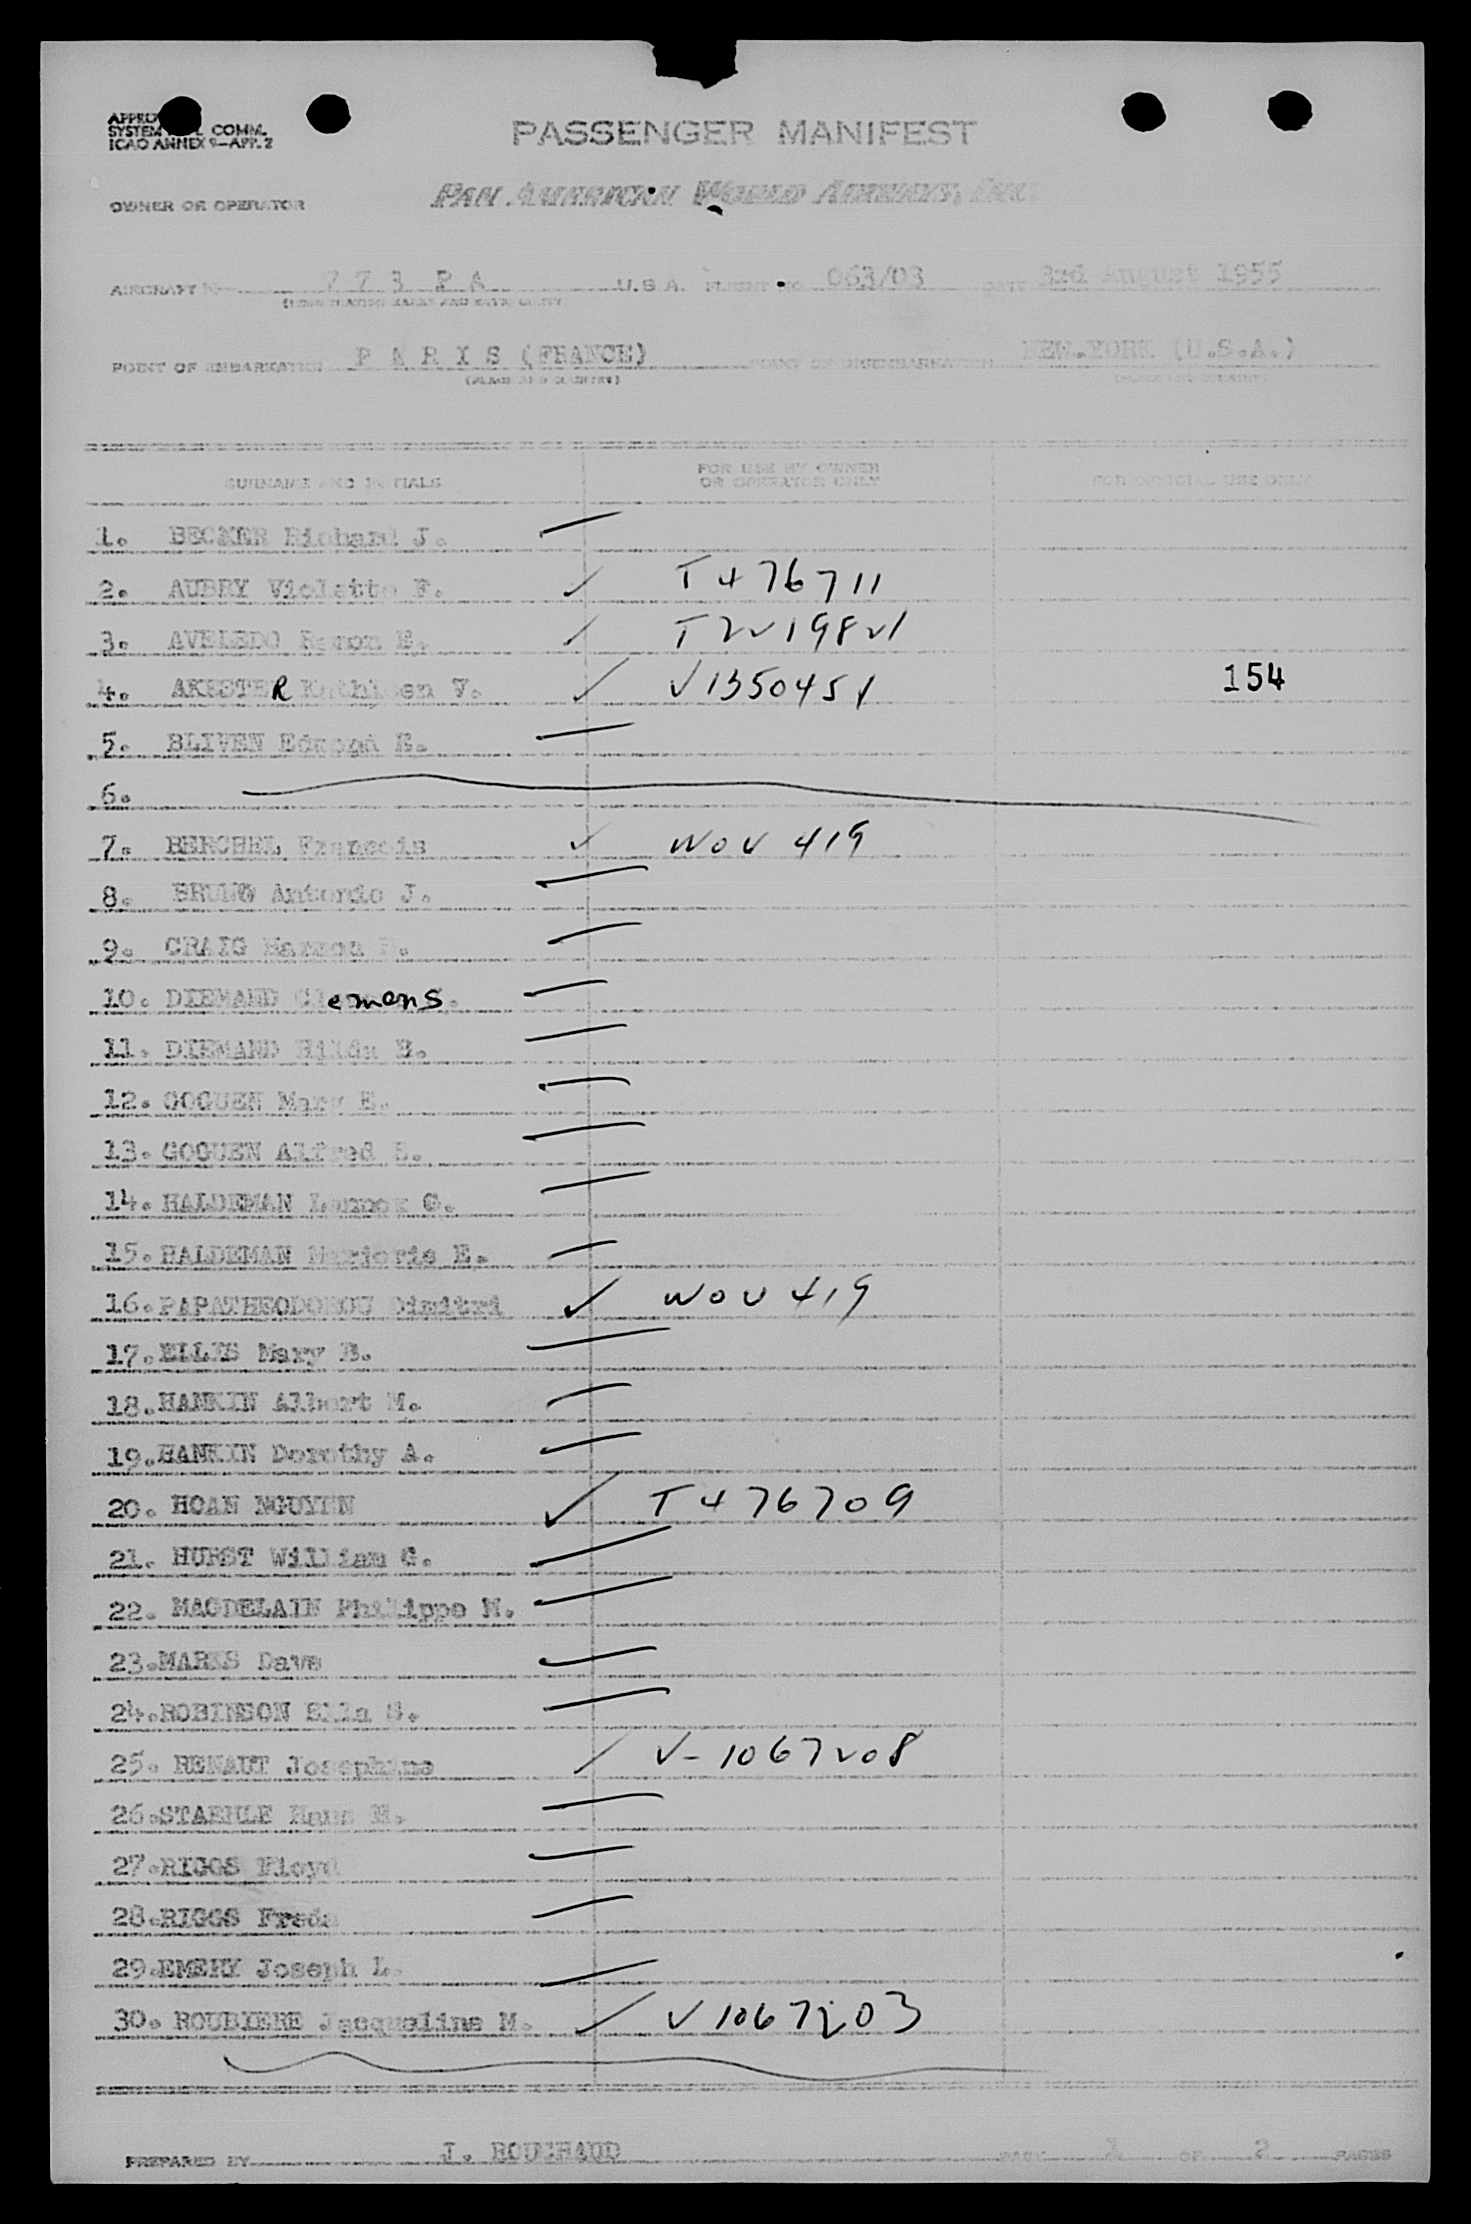 SYSTEM COMM.
ICAO ANNEX 9—APP. 2
PASSENGER MANIFEST
OWNER OR OPERATOR PAN AMERICAN WORLD AIRWAYS, INC.
AIRCRAFT 773 PA U.S.A. FLIGHT NO 063/03 DATE 3rd August 1955
POINT OF EMBARKATION PARIS (FRANCE) POINT OF DISEMBARKATION NEW.YORK (U.S.A.)
(PLACE AND COUNTRY) (PLACE AND COUNTRY)
SURNAME AND INITIALS FOR USE BY OWNER OR OPERATOR ONLY FOR OFFICIAL USE ONLY
1. BECKER Richard J.
2. AUBRY Violette F. T476711
3. AVELEDO Ramon E. T2219821
4. AKESTER Kathleen V. V1350451 154
5. BLIVEN Edmond E.
6.
7. BERCHEL Francois WOV 419
8. BRUNO Antonio J.
9. CRAIG
10. DIEMAND Clemens
11. DIEMAND Hilda B.
12. GOGUEN Mary E.
13. GOGUEN Alfred
14. HALDEMAN Lennox G.
15. HALDEMAN Marjorie E.
16. PAPATHEODOROU Dimitri WOV 419
17. ELLIS Mary B.
18. HANKIN Albert M.
19. HANKIN Dorothy A.
20. HOAN NGUYEN T476709
21. HURST William G.
22. MAGDELAIN Philippe M.
23. MARKS Dave
24. ROBINSON Ella S.
25. RENAUT Josephine V-1067208
26. STAEHLE Hans M.
27. RIGGS Floyd
28. RIGGS Freda
29. EMERY Joseph L.
30. ROUBIERE Jacqueline M. V1067203
PREPARED BY J. BOUCHAUD PAGE 1 OF 2 PAGES